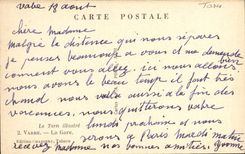 vabre 19 aout
CARTE POSTALE
chère Madame
malgre la distance qui nous sépare
je penses beaucoup a vous et me demande
comment vous allez ici nous allons bien
nous avons le beau temp il fait très
chaud nous voila aussi a la fin des
vacances, nous quitterons vabre
lundi prochaine et nous
serons a Paris mardi matin
recevez madame nos bonnes amitiés
Le Tarn illustré
2. VABRE. — La Gare.